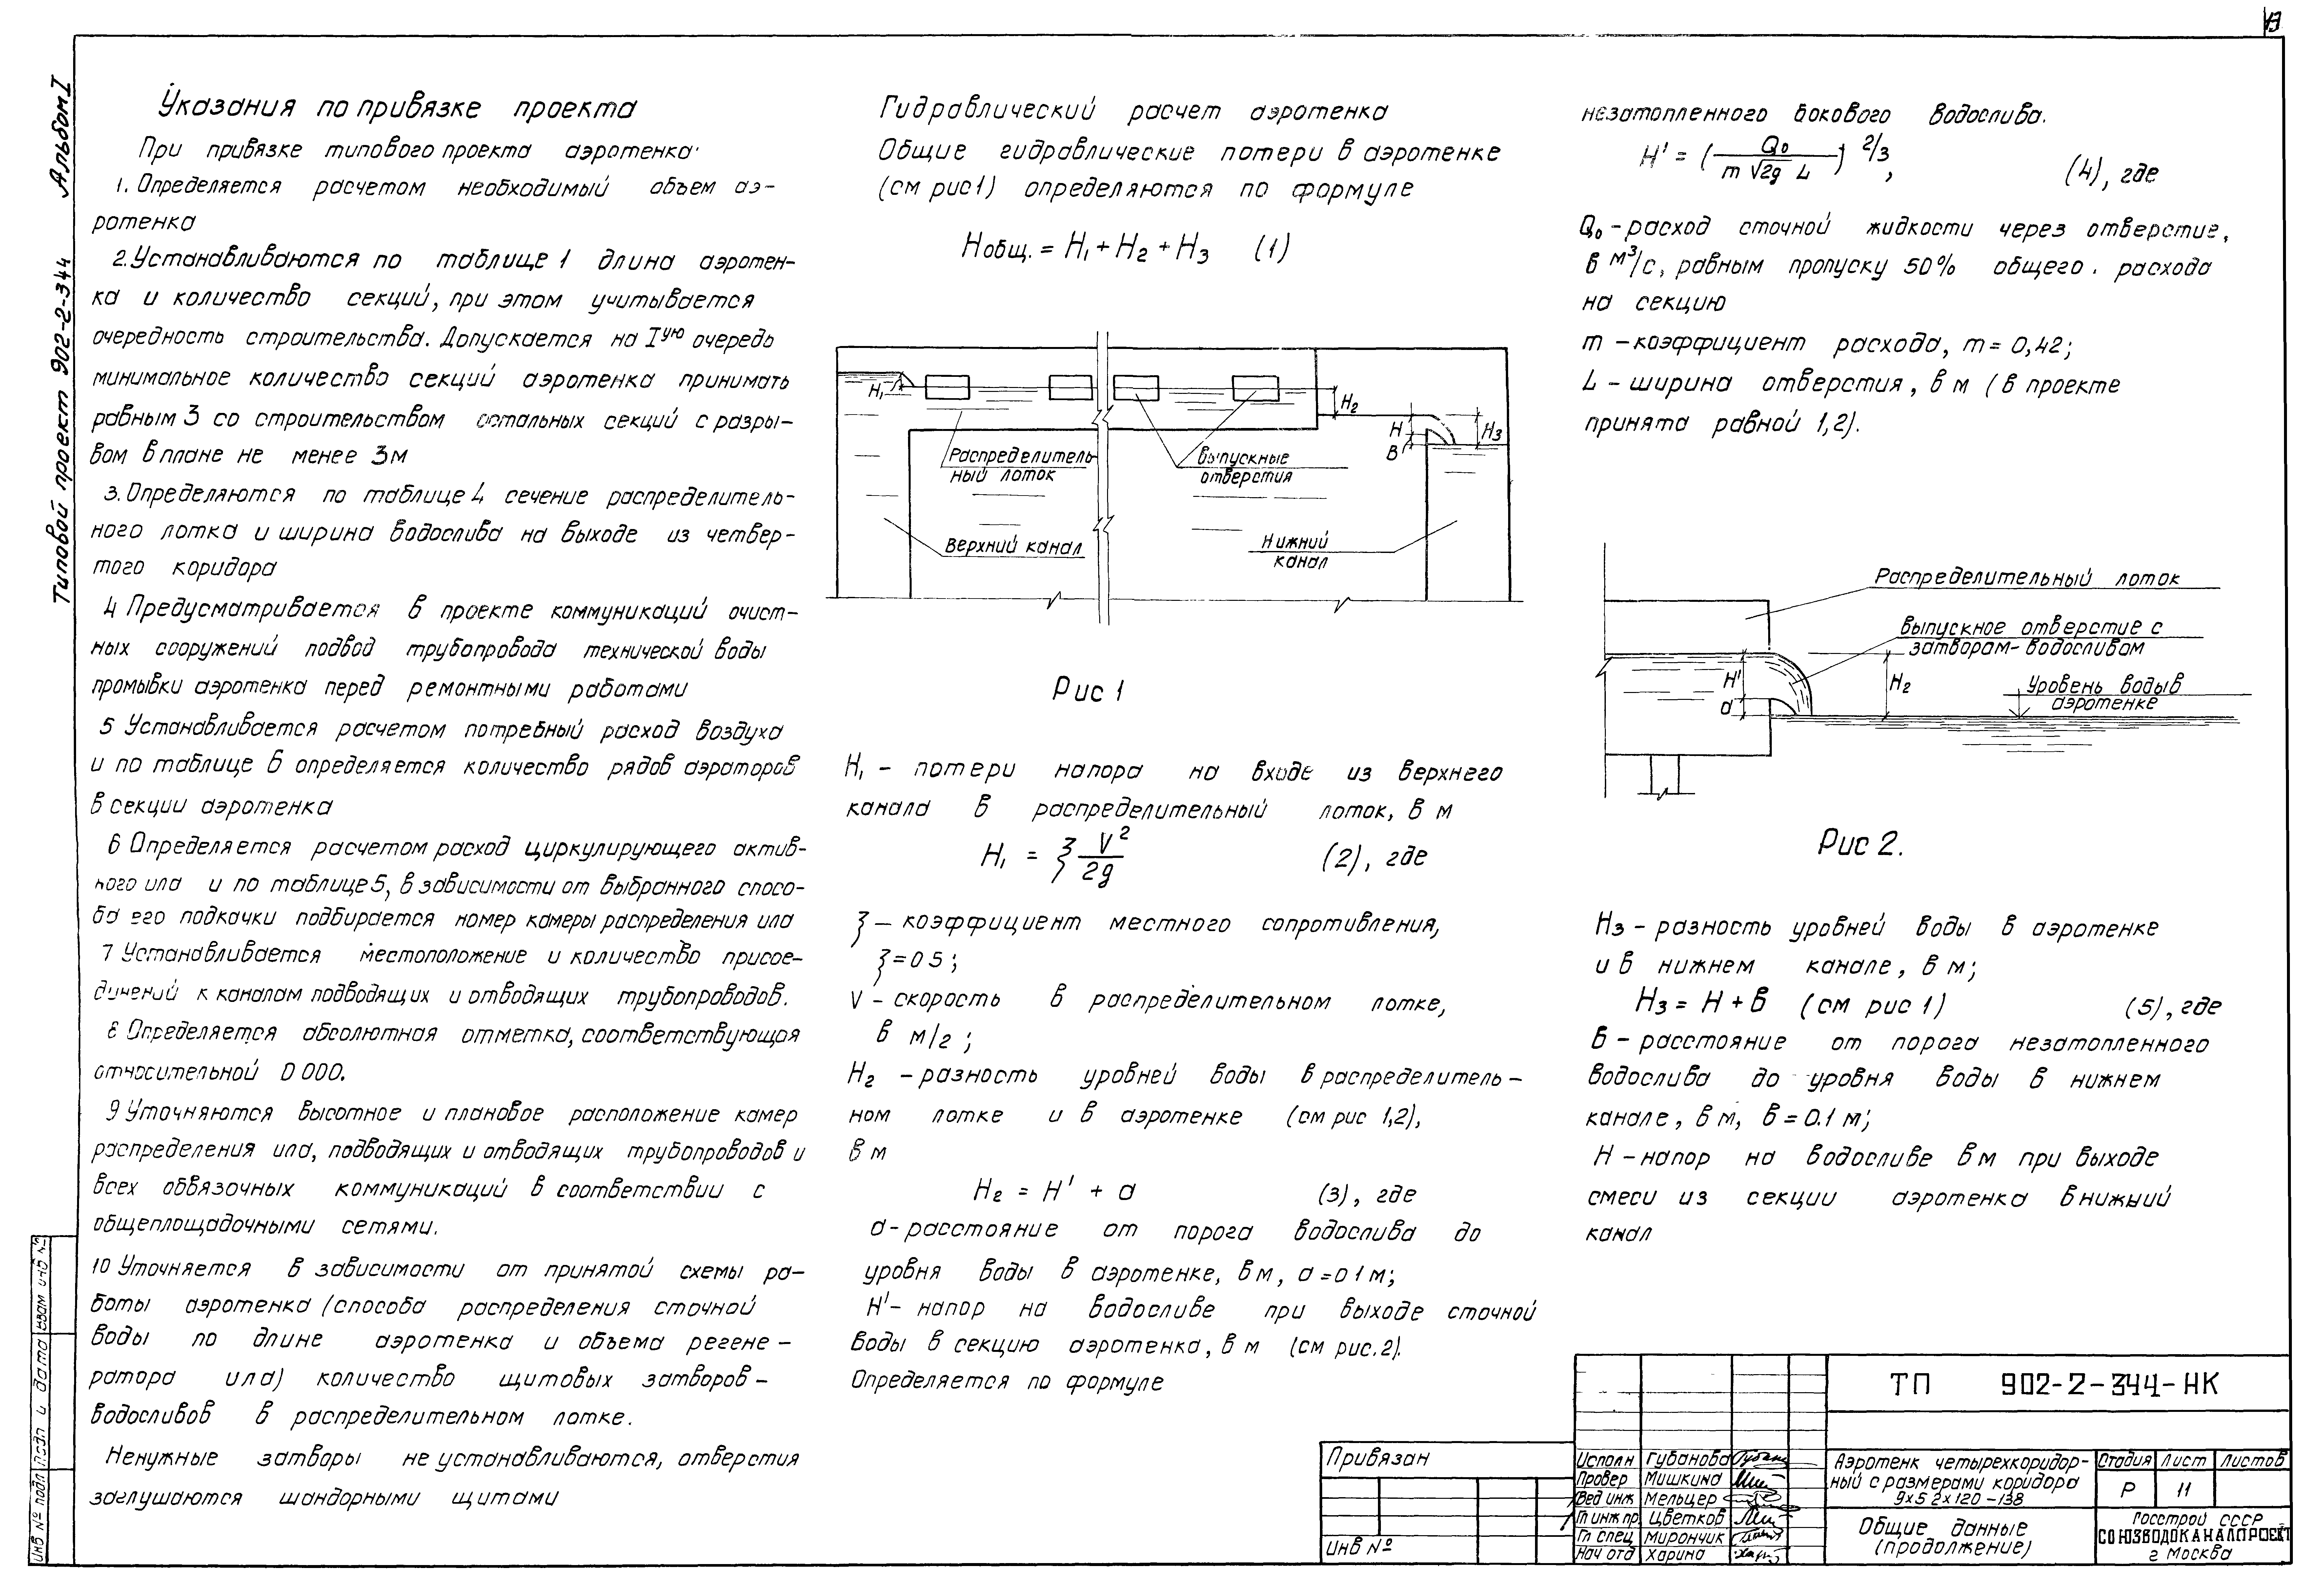 13
Типовой проект 902-2-344 Альбом I
Указания по привязке проекта
При привязке типового проекта аэротенка:
1. Определяется расчетом необходимый объем аэ-
ротенка
2. Устанавливаются по таблице 1 длина аэротен-
ка и количество секций, при этом учитывается
очередность строительства. Допускается на I ую очередь
минимальное количество секций аэротенка принимать
равным 3 со строительством остальных секций с разры-
вом в плане не менее 3м
3. Определяются по таблице 4 сечение распределитель-
ного лотка и ширина водослива на выходе из четвер-
того коридора
4 Предусматривается в проекте коммуникаций очист-
ных сооружений подвод трубопровода технической воды
промывки аэротенка перед ремонтными работами
5 Устанавливается расчетом потребный расход воздуха
и по таблице 6 определяется количество рядов аэраторов
в секции аэротенка
6 Определяется расчетом расход циркулирующего актив-
ного ила и по таблице 5, в зависимости от выбранного спосо-
ба его подкачки подбирается номер камеры распределения ила
7 Устанавливается местоположение и количество присое-
динений к каналам подводящих и отводящих трубопроводов.
8 Определяется абсолютная отметка, соответствующая
относительной 0 000.
9 Уточняются высотное и плановое расположение камер
распределения ила, подводящих и отводящих трубопроводов и
всех обвязочных коммуникаций в соответствии с
общеплощадочными сетями.
10 Уточняется в зависимости от принятой схемы ра-
боты аэротенка (способа распределения сточной
воды по длине аэротенка и объема регене-
ратора ила) количество щитовых затворов-
водосливов в распределительном лотке.
Ненужные затворы не устанавливаются, отверстия
заглушаются шандорными щитами
Гидравлический расчет аэротенка
Общие гидравлические потери в аэротенке
(см рис1) определяются по формуле
Нобщ. = H₁ + H₂ + H₃ (1)
H₁
H₂
H
B
H₃
Распределитель-
ный лоток
Выпускные
отверстия
Верхний канал
Нижний
канал
Рис 1
H₁ - потери напора на входе из верхнего
канала в распределительный лоток, в м
H₁ = ξ V²/2g (2), где
ξ - коэффициент местного сопротивления,
ξ = 0 5;
V - скорость в распределительном лотке,
в м/г;
H₂ - разность уровней воды в распределитель-
ном лотке и в аэротенке (см рис 1,2),
в м
H₂ = H' + a (3), где
a - расстояние от порога водослива до
уровня воды в аэротенке, в м, a = 0 1 м;
H' - напор на водосливе при выходе сточной
воды в секцию аэротенка, в м (см рис. 2).
Определяется по формуле
незатопленного бокового водослива.
H' = (Q₀ / m √2g L) ²/³, (4), где
Q₀ - расход сточной жидкости через отверстие,
в м³/с, равным пропуску 50% общего. расхода
на секцию
m - коэффициент расхода, m = 0,42;
L - ширина отверстия, в м (в проекте
принята равной 1,2).
Распределительный лоток
Выпускное отверстие с
затвором-водосливом
H'
a
H₂
Уровень воды в
аэротенке
Рис 2.
H₃ - разность уровней воды в аэротенке
и в нижнем канале, в м;
H₃ = H + в (см рис 1) (5), где
в - расстояние от порога незатопленного
водослива до уровня воды в нижнем
канале, в м, в = 0.1 м;
H - напор на водосливе в м при выходе
смеси из секции аэротенка в нижний
канал
Привязан
Инв №
Исполн Губанова
Провер Мишкина
Вед инж Мельцер
Гл инж пр Цветков
Гл спец Мирончик
Нач отд Харина
ТП 902-2-344-НК
Аэротенк четырехкоридор-
ный с размерами коридора
9х5 2х120-138
Стадия Лист Листов
Р 11
Общие данные
(продолжение)
Госстрой СССР
СОЮЗВОДОКАНАЛПРОЕКТ
г Москва
Инв № подл Подп и дата Взам инв №